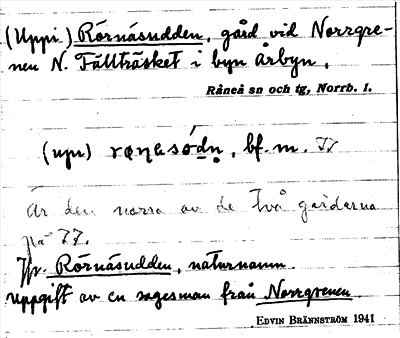 (Uppi.) Rörnäsudden, gård vid Norrgre-
nen N. Fällträsket i byn Årbyn.
Råneå sn och tg, Norrb. l.
(upi) rɐn̩ɐsódn̥, bf. m. 77
Är den norra av de två gårdarna
på 77.
Jfr. Rörnäsudden, naturnamn.
Uppgift av en sagesman från Norrgrenen.
EDVIN BRÄNNSTRÖM 1941